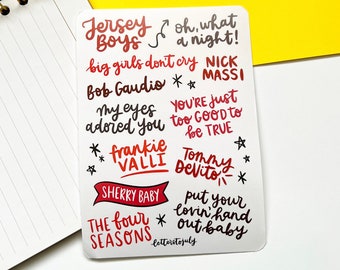 Jersey Boys
oh, what a night!
big girls don't cry
NICK MASSI
Bob Gaudio
my eyes adored you
YOU'RE JUST TOO GOOD TO BE TRUE
frankie VALLI
Tommy DeVito
SHERRY BABY
put your lovin' hand out, baby
THE four SEASONS
letteritojuly